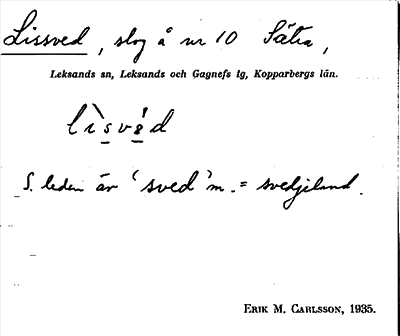 Lissved, slog å nr 10 Sätra,
Leksands sn, Leksands och Gagnefs tg, Kopparbergs län.
S. leden är 'sved' m. = svedjeland.
ERIK M. CARLSSON, 1935.